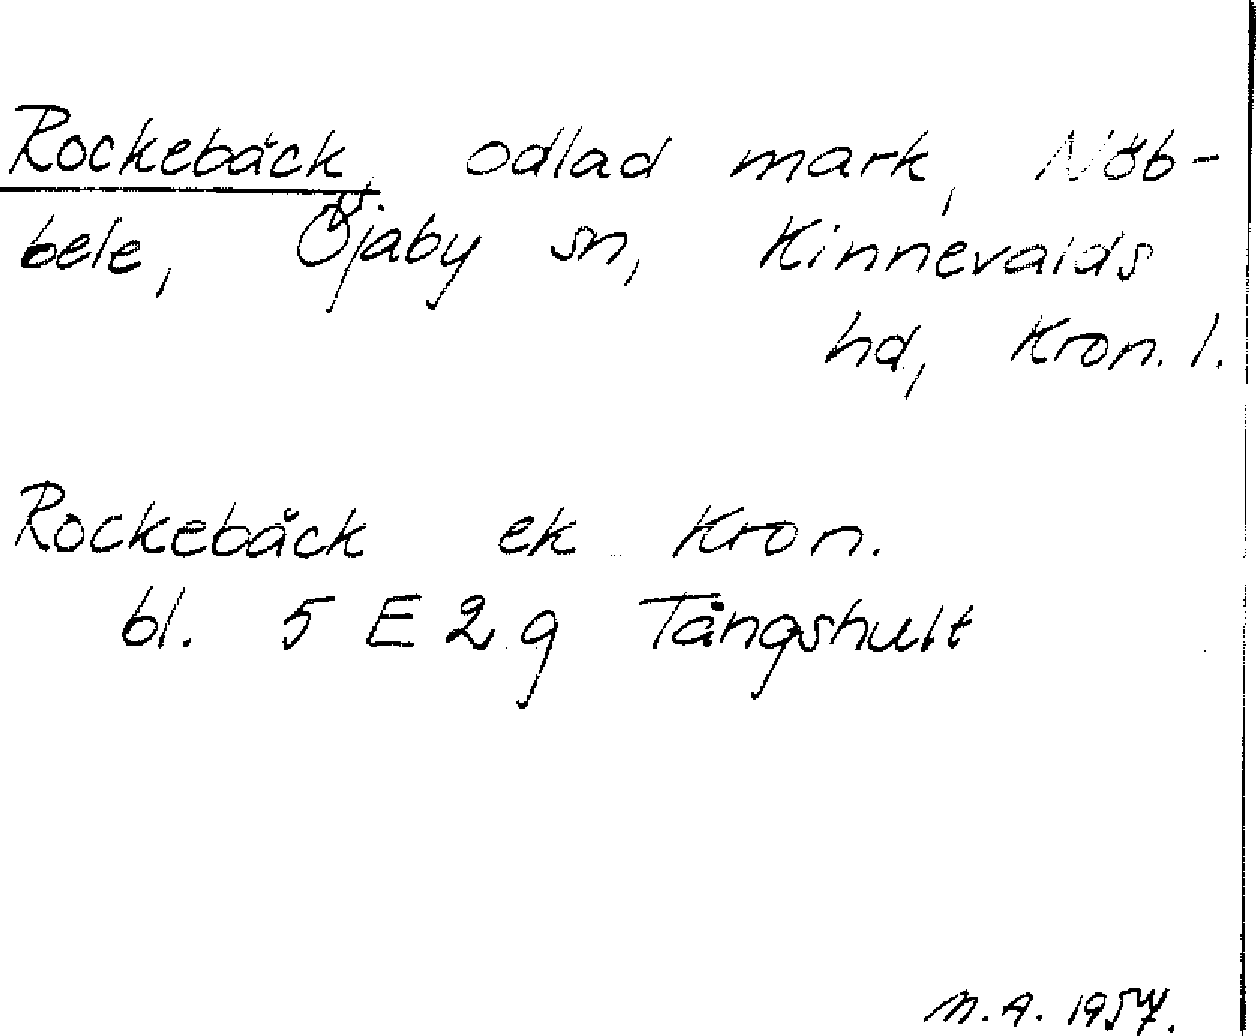 Rockebäck, odlad mark, Nöb-
bele, Öjaby sn, Kinnevalds
hd, Kron. l.
Rockebäck ek Kron.
bl. 5 E 2 g Tångshult
M.A. 1957.